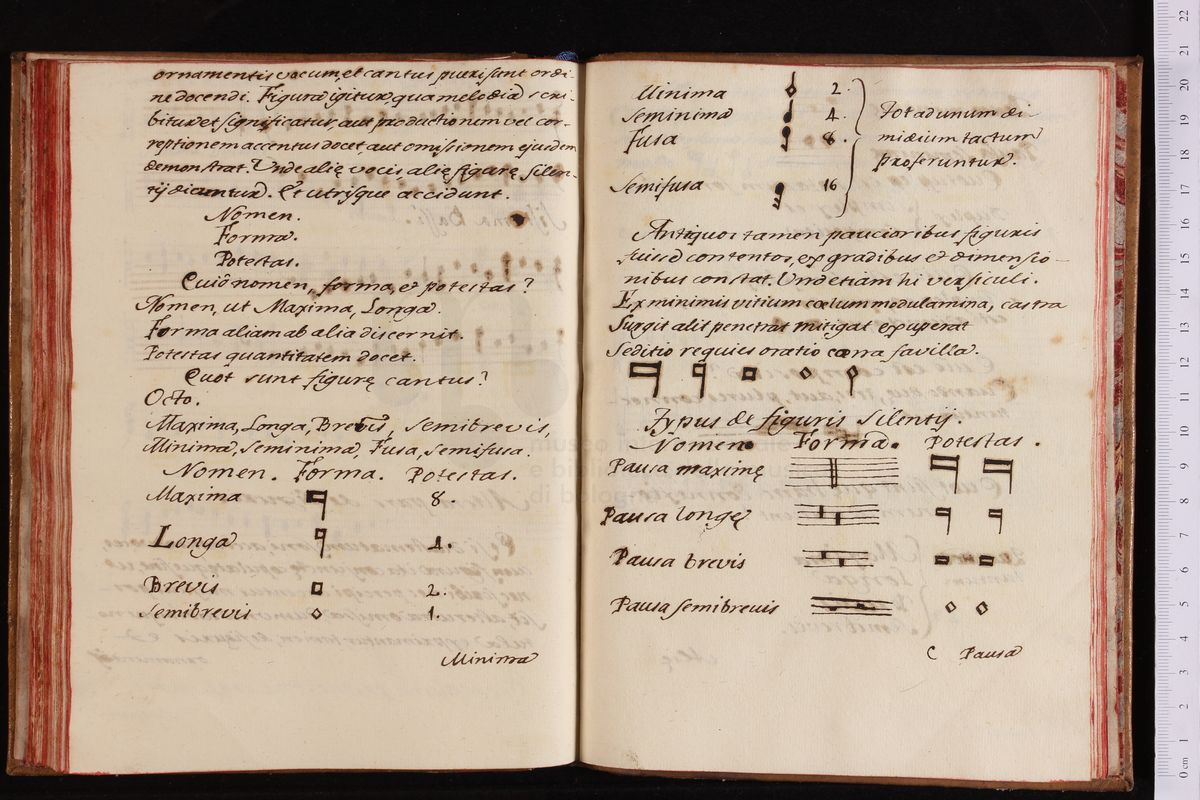 ornamentis vocum, et cantus pueri sunt ordi-
ne docendi. Figura igitur, qua melodia scri-
bitur et significatur, aut productionum vel cor-
reptionem accentus docet, aut omissionem ejusdem
demonstrat. Unde alię vocis alię figurę silen-
tij dicuntur. Et utrisque accidunt.
Nomen.
Forma.
Potestas.
Cui nomen, forma, et potestas?
Nomen, ut Maxima, Longa.
Forma aliam ab alia discernit.
Potestas quantitatem docet.
Quot sunt figurę cantus?
Octo.
Maxima, Longa, Brevis, Semibrevis,
Minima, Seminima, Fusa, Semifusa.
Nomen. Forma. Potestas.
Maxima 8.
Longa 4.
Brevis 2.
Semibrevis 1.
Minima
Minima 2.
Seminima 4.
Fusa 8.
Semifusa 16
Tot ad unum di
midium tactum
proferuntur.
Antiquos tamen paucioribus figuris
fuisse contentos, ex gradibus et dimensio-
nibus constat. Unde etiam hi versiculi.
Ex minimis vitium cœlum modulamina, castra
Surgit alit penetrat mitigat exuperat
Seditio requies oratio cœna favilla.
Typus de figuris Silentij.
Nomen. Forma. Potestas.
Pausa maximę
Pausa longę
Pausa brevis
Pausa semibrevis
C Pausa
22
21
20
19
18
17
16
15
14
13
12
11
10
9
8
7
6
5
4
3
2
1
0 cm